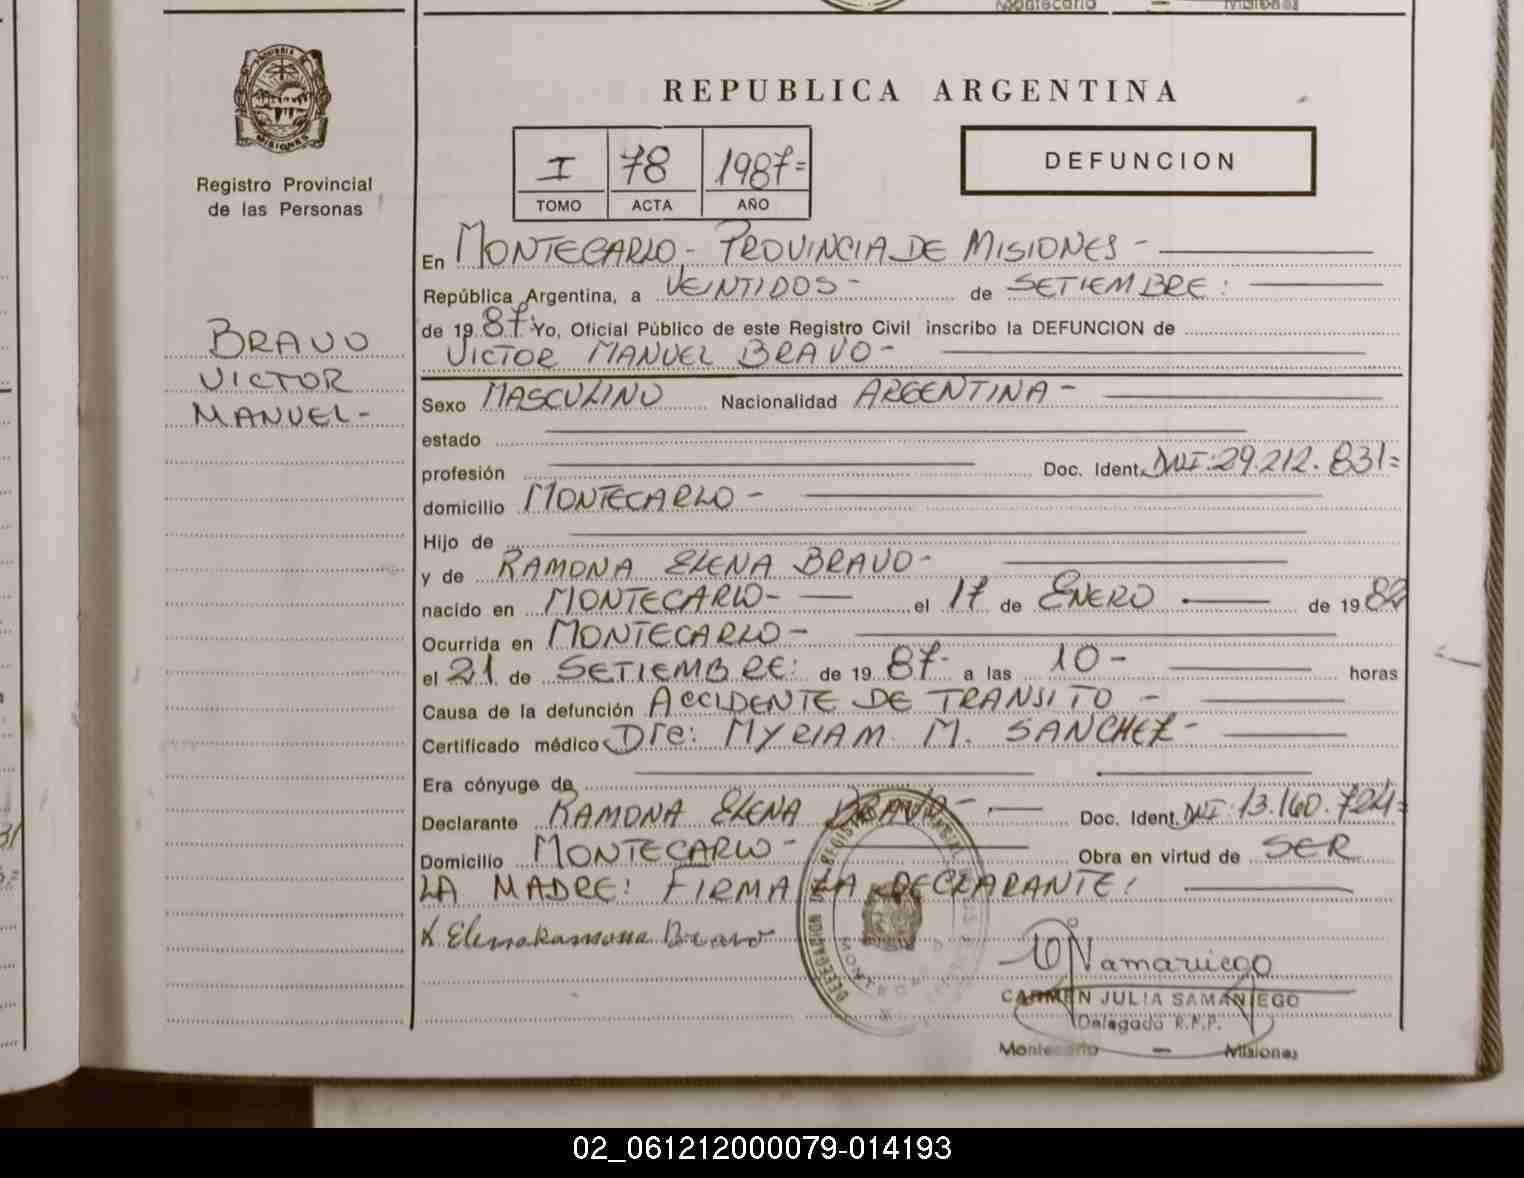 Montecarlo — Misiones
REPUBLICA ARGENTINA
PROVINCIA DE
MISIONES
Registro Provincial
de las Personas
I 78 1987=
TOMO ACTA AÑO
DEFUNCION
BRAVO
VICTOR
MANUEL-
En MONTECARLO- PROVINCIA DE MISIONES -
República Argentina, a VEINTIDOS- de SETIEMBRE:
de 1987: Yo, Oficial Público de este Registro Civil inscribo la DEFUNCION de
VICTOR MANUEL BRAVO-
Sexo MASCULINO Nacionalidad ARGENTINA-
estado
profesión Doc. Ident. DNI:29.212.831=
domicilio MONTECARLO-
Hijo de
y de RAMONA ELENA BRAVO-
nacido en MONTECARLO- el 17 de ENERO de 1982
Ocurrida en MONTECARLO-
el 21 de SETIEMBRE: de 1987- a las 10- horas
Causa de la defunción ACCIDENTE DE TRANSITO -
Certificado médico Dra: MYRIAM M. SANCHEZ-
Era cónyuge de
Declarante RAMONA ELENA BRAVO- Doc. Ident. DNI:13.160.724=
Domicilio MONTECARLO- Obra en virtud de SER
LA MADRE: FIRMA LA DECLARANTE:
X Elena Ramona Bravo
Samaniego
CARMEN JULIA SAMANIEGO
Delegado R.P.P.
Montecarlo — Misiones
02_061212000079-014193